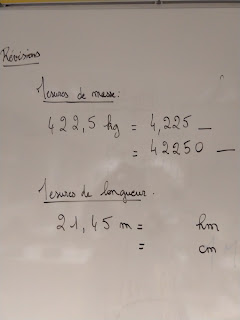 Révisions
Mesures de masse :
422,5 kg = 4,225 _
= 42250 _
Mesures de longueur.
21,45 m = hm
= cm